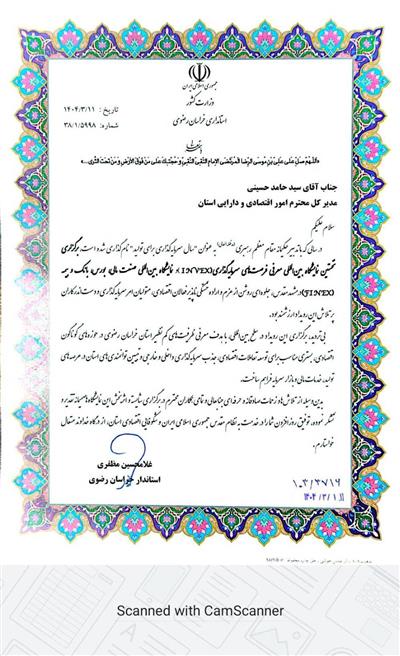 جمهوری اسلامی ایران
وزارت کشور
استانداری خراسان رضوی
تاریخ : ۱۴۰۴/۳/۱۱
شماره: ۳۸/۱/۵۹۹۸
«اللهم صل علی علی بن موسی الرضا المرتضی الامام التقی النقی و حجتک علی من فوق الارض و من تحت الثری...»
جناب آقای سید حامد حسینی
مدیر کل محترم امور اقتصادی و دارایی استان
سلام علیکم
در سالی که با تدبیر حکیمانه مقام معظم رهبری به عنوان "سال سرمایه‌گذاری برای تولید" نام‌گذاری شده است، برگزاری
نخستین نمایشگاه بین‌المللی معرفی فرصت‌های سرمایه‌گذاری (INVEX) و نمایشگاه بین‌المللی صنعت مالی، بورس، بانک و بیمه
(FINEX) در مشهد مقدس، جلوه‌ای روشن از عزم و اراده خستگی‌ناپذیر فعالان اقتصادی، متولیان امر سرمایه‌گذاری و دست‌اندرکاران
پرتلاش این رویداد ارزشمند بود.
بی‌تردید، برگزاری این رویداد در سطح بین‌المللی، با هدف معرفی ظرفیت‌های کم‌نظیر استان خراسان رضوی در حوزه‌های گوناگون
اقتصادی، بستری مناسب برای توسعه تعاملات اقتصادی، جذب سرمایه‌گذاری داخلی و خارجی و تبیین توانمندی‌های استان در عرصه‌های
تولید، خدمات مالی و بازار سرمایه فراهم ساخت.
بدین‌وسیله از تلاش‌ها و زحمات صادقانه و حرفه‌ای جنابعالی و تمامی همکاران محترم در برگزاری شایسته و اثربخش این نمایشگاه‌ها صمیمانه تقدیر و
تشکر نموده، توفیق روزافزون شما را در خدمت به نظام مقدس جمهوری اسلامی ایران و شکوفایی اقتصادی استان، از درگاه خداوند متعال
خواستارم.
غلامحسین مظفری
استاندار خراسان رضوی
۱۰۳/۳۷۱۹
۱۴۰۴/۳/۱۱
Scanned with CamScanner